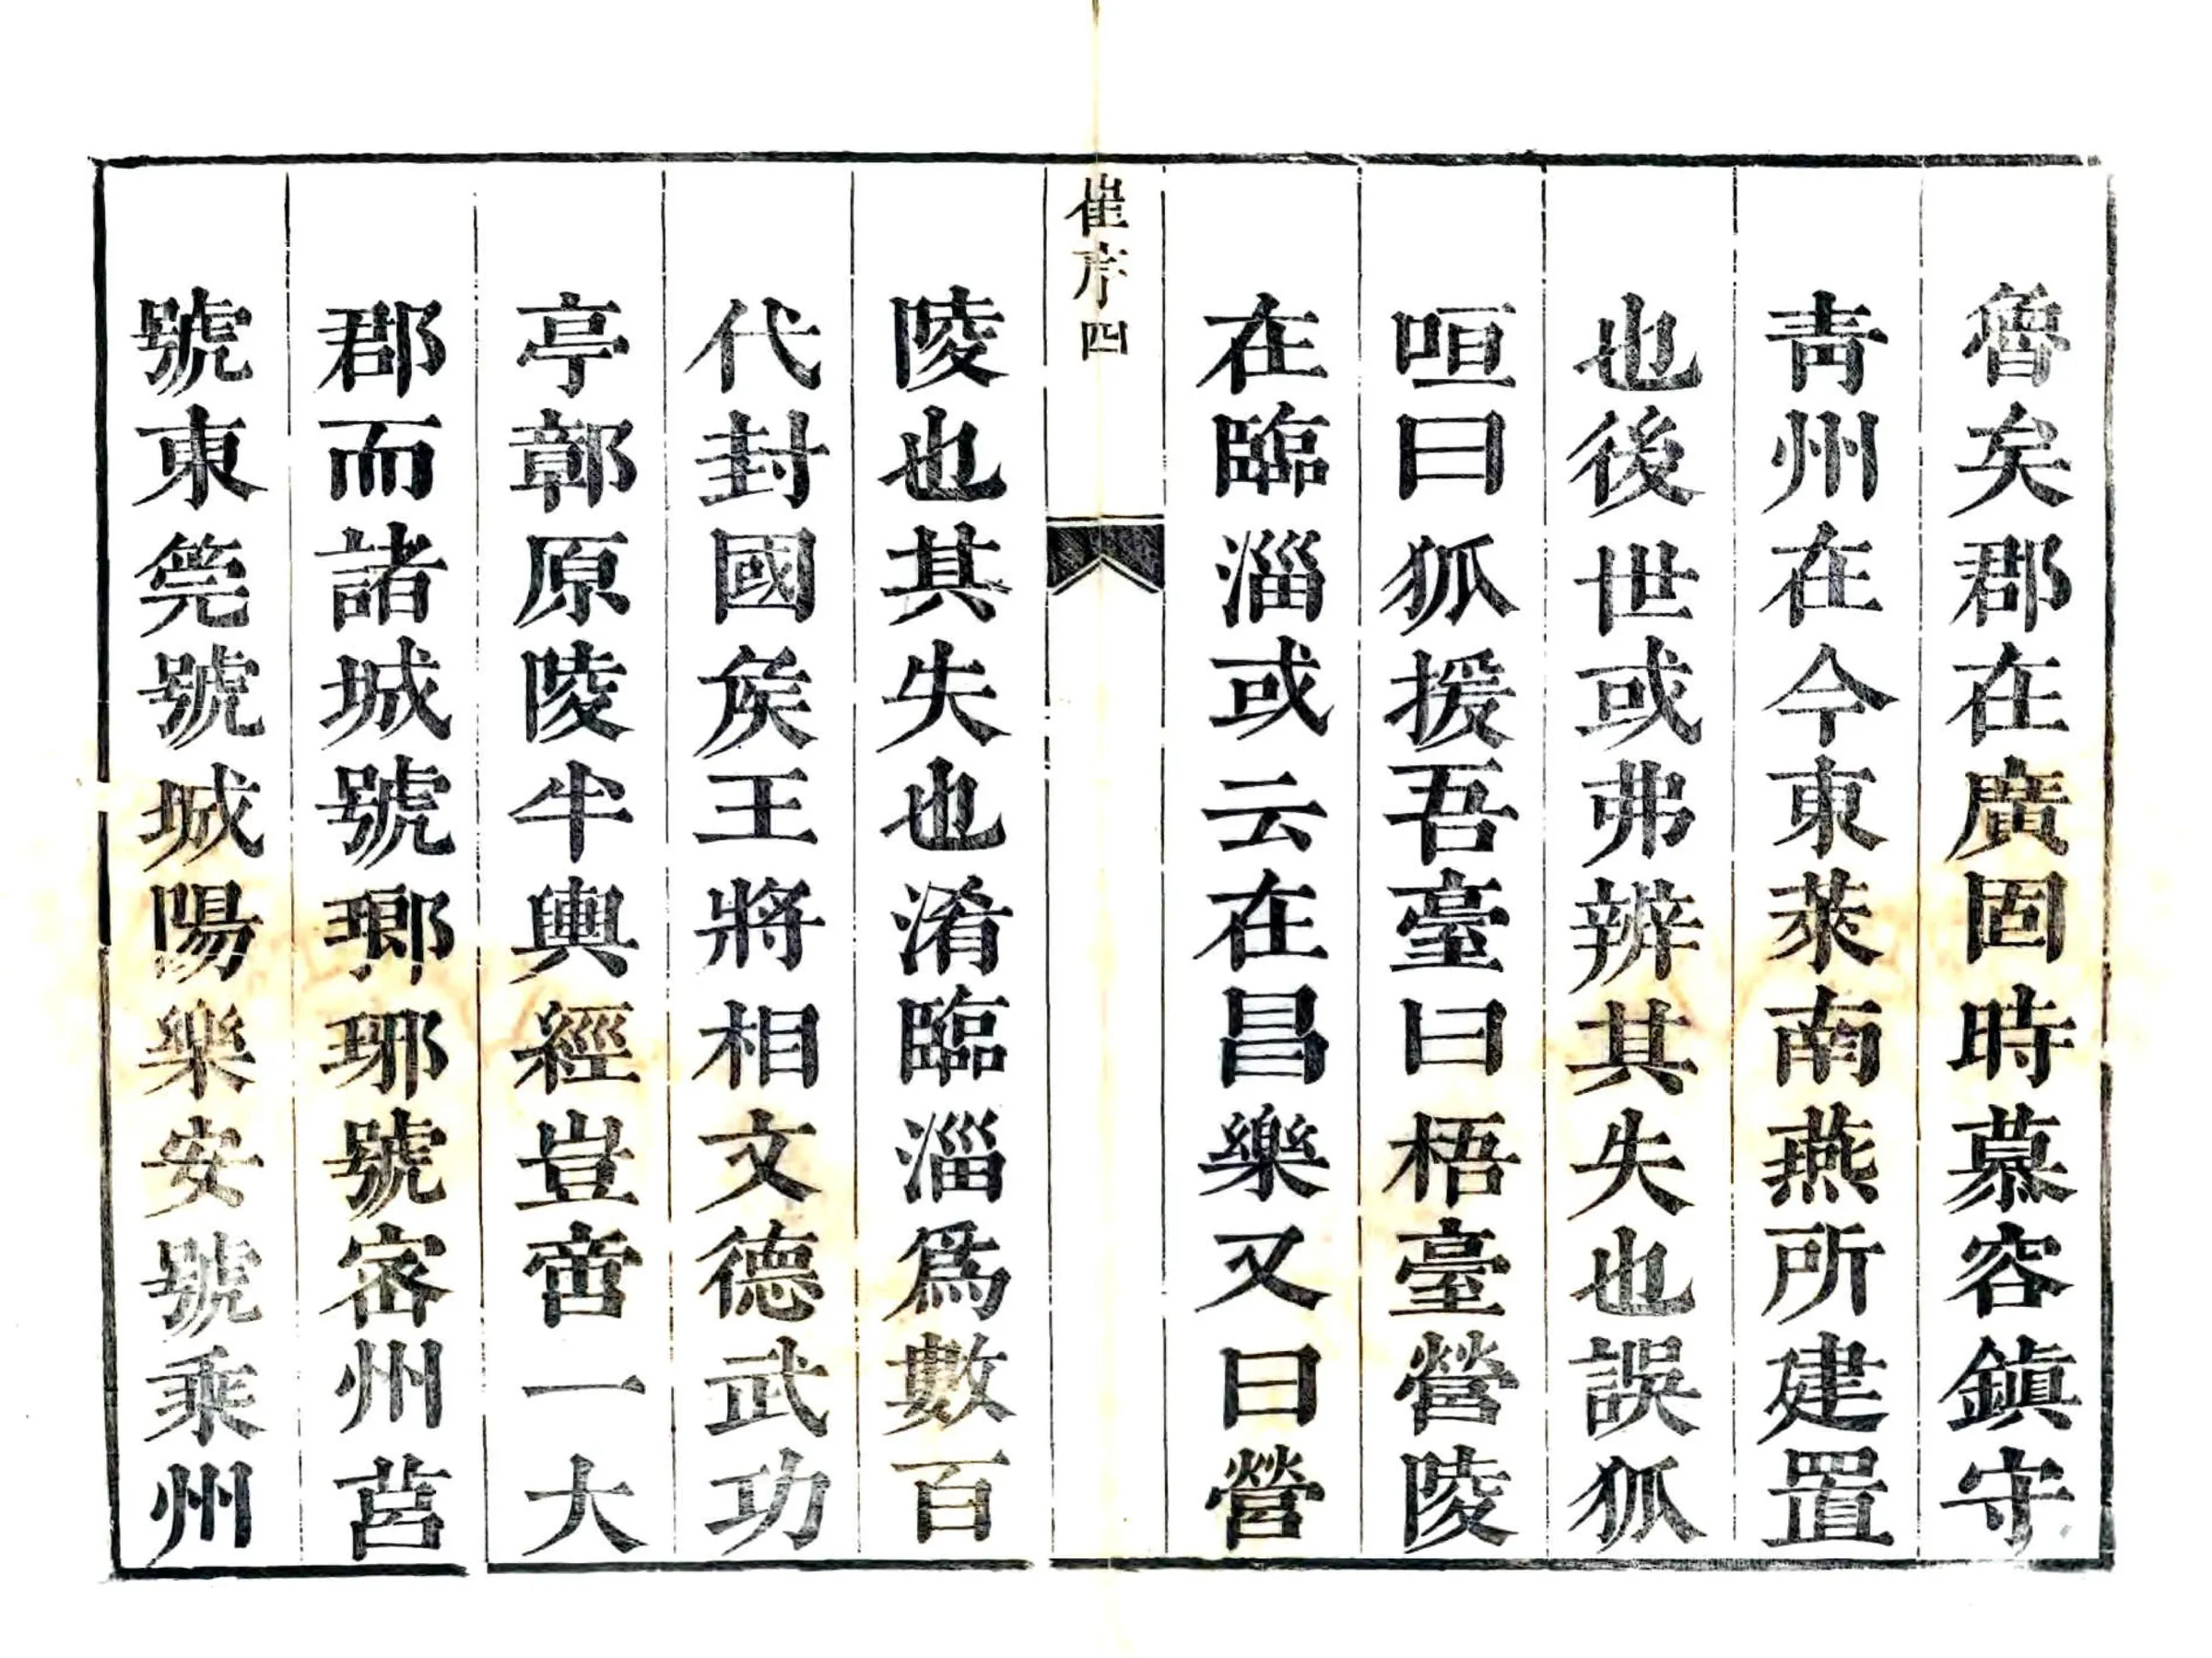 魯矣郡在廣固時慕容鎮守
青州在今東萊南燕所建置
也後世或弗辨其失也誤狐
咺曰狐援吾臺曰梧臺營陵
在臨淄或云在昌樂又曰營
崔序 四
陵也其失也淆臨淄爲數百
代封國矦王將相文德武功
亭鄣原陵牛輿經豈啻一大
郡而諸城號瑯琊號密州莒
號東莞號城陽樂安號乘州